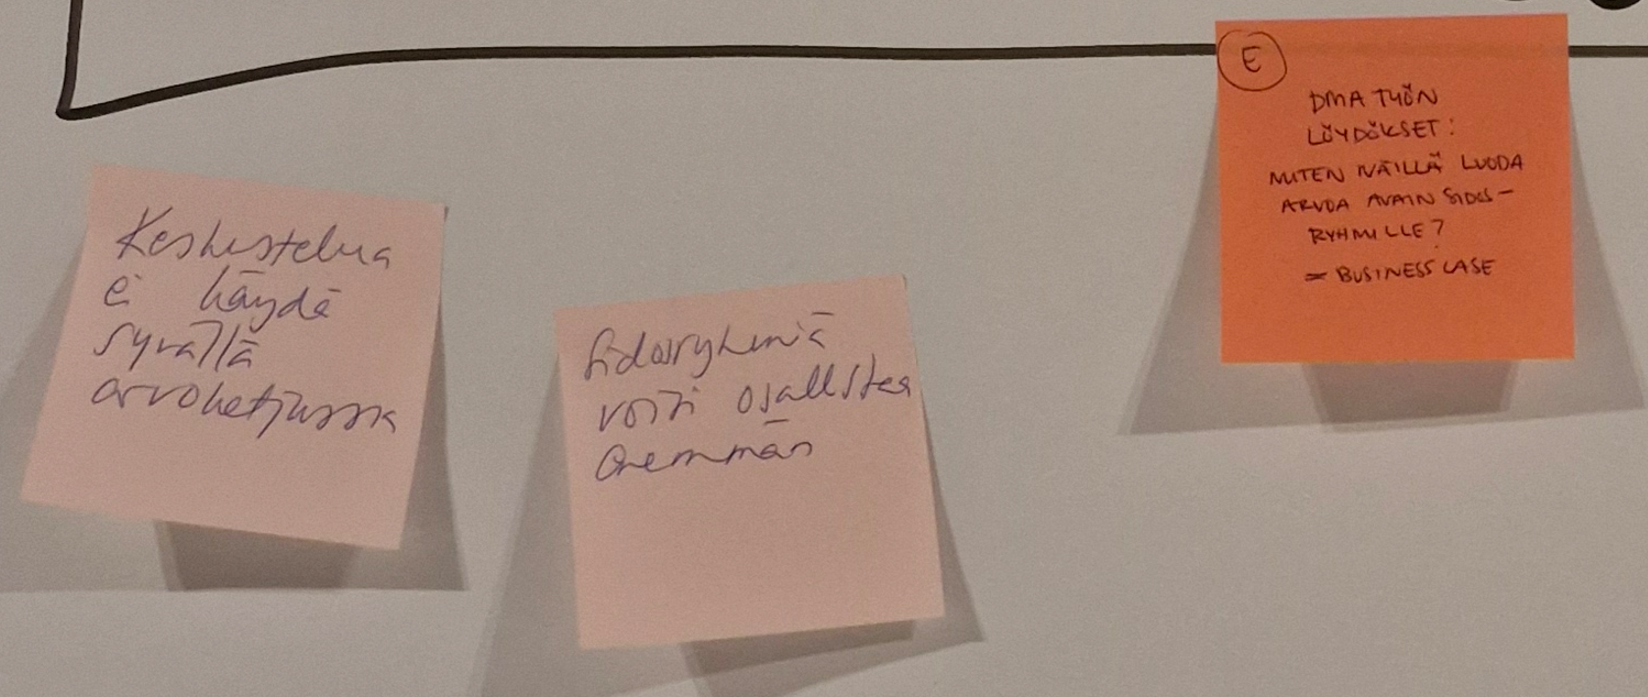 Keskustelua
ei käydä
syvällä
arvoketjussa
Sidosryhmiä
voisi osallistaa
enemmän
E
DMA TYÖN
LÖYDÖKSET:
MITEN NÄILLÄ LUODA
ARVOA AVAIN SIDOS-
RYHMILLE?
= BUSINESS CASE